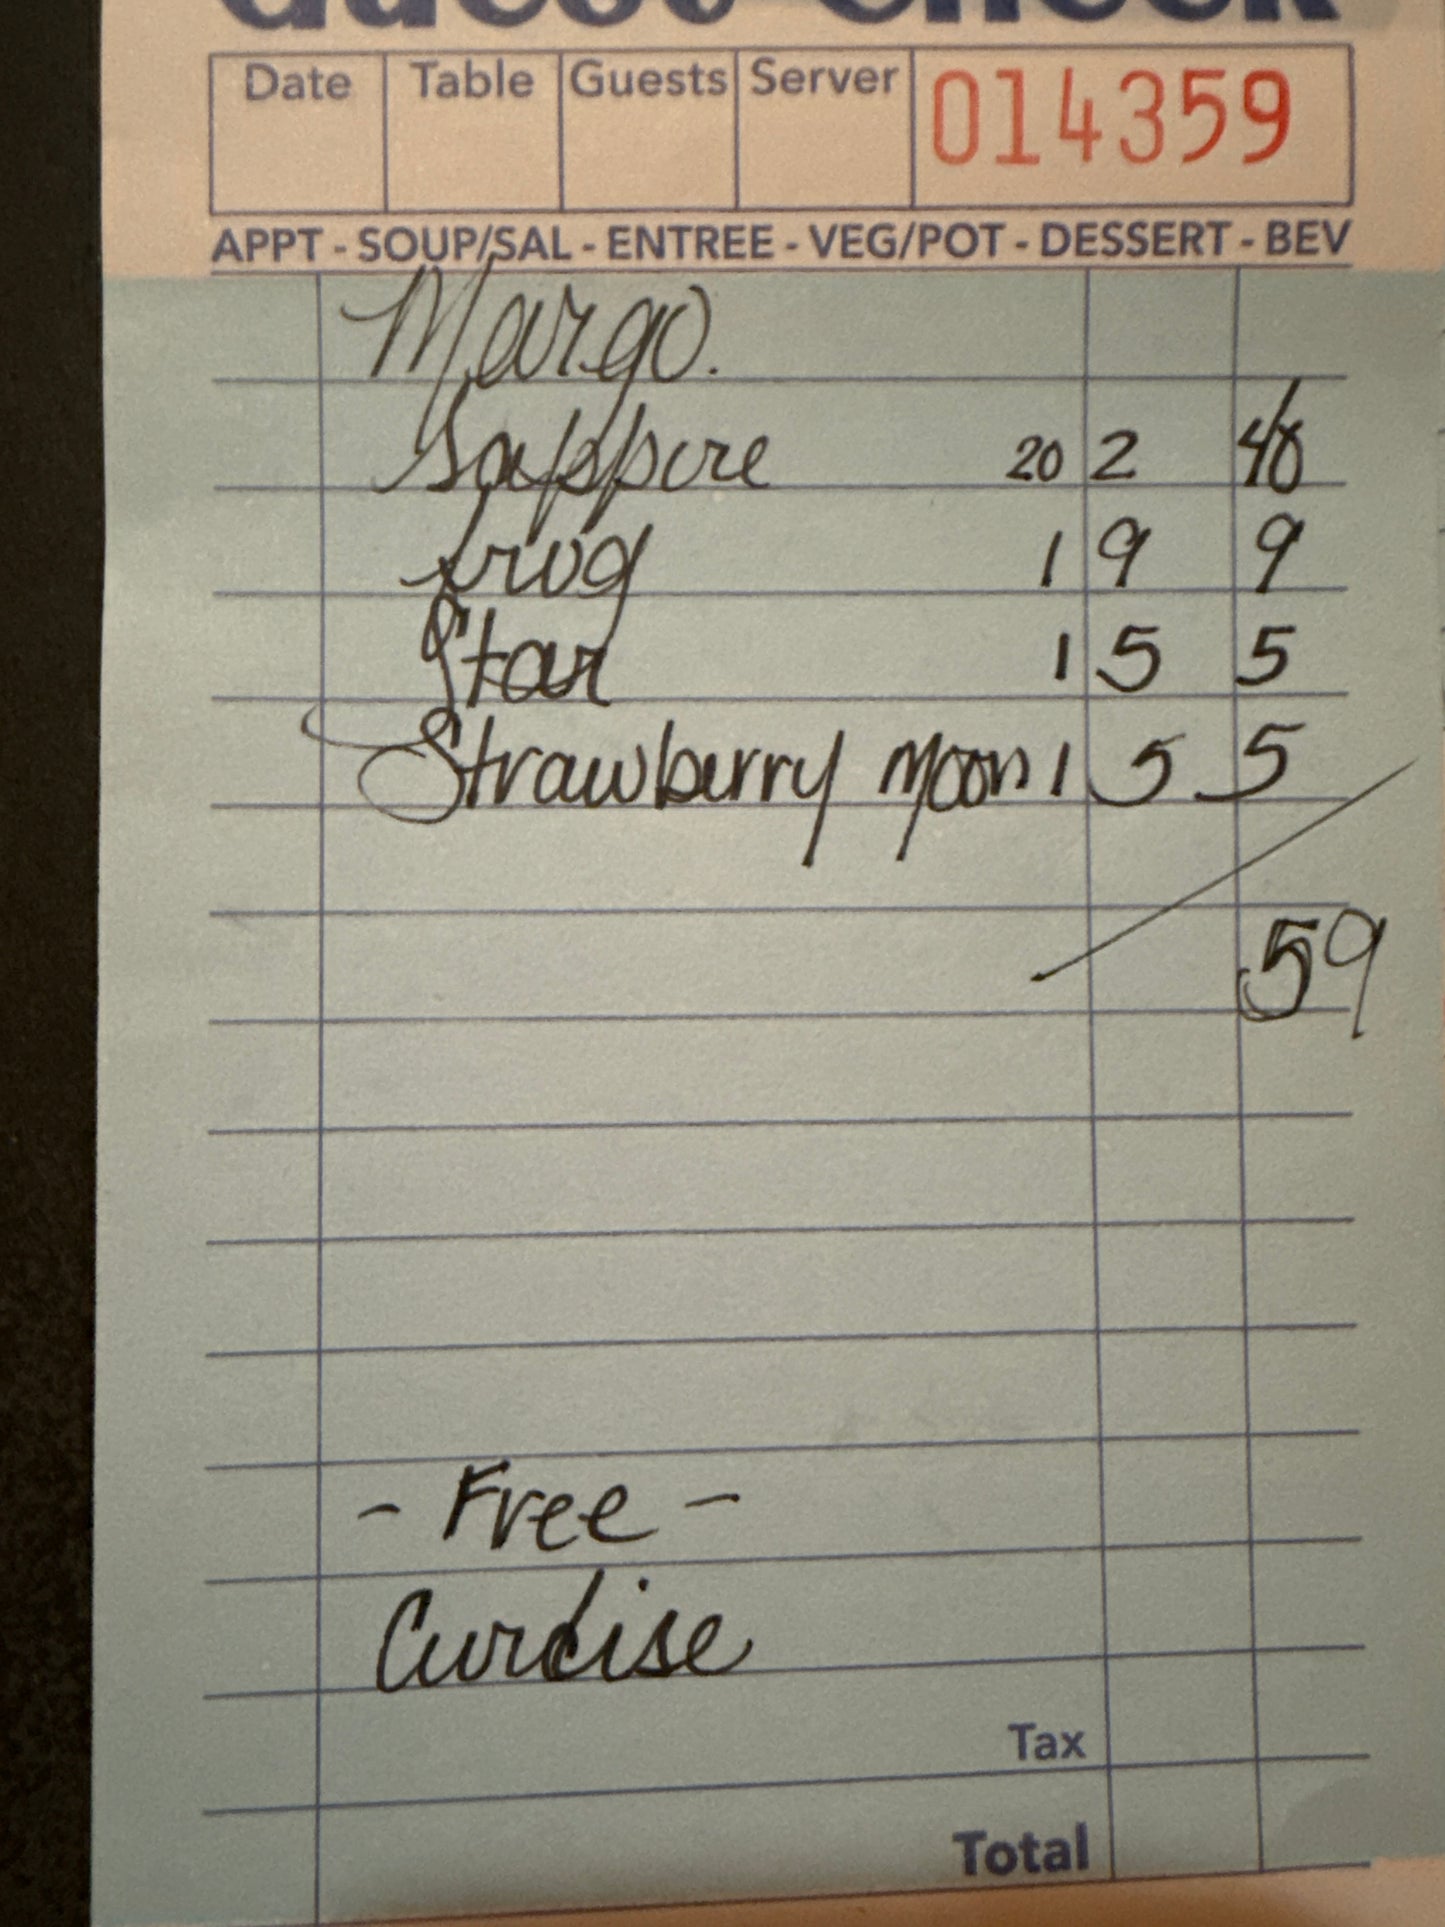 Guest Check
Date Table Guests Server 014359
APPT - SOUP/SAL - ENTREE - VEG/POT - DESSERT - BEV
Margo.
Sappire 20 2 40
frog 1 9 9
Star 1 5 5
Strawberry moon 1 5 5
59
- Free -
Curdise
Tax
Total